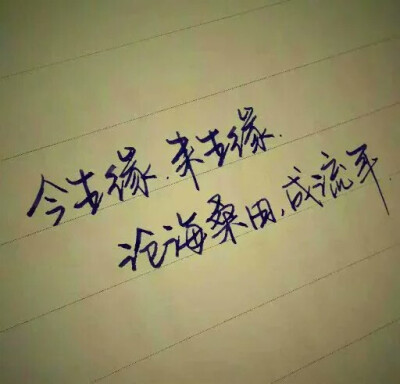 今世缘.来世缘.
沧海桑田,成流年.